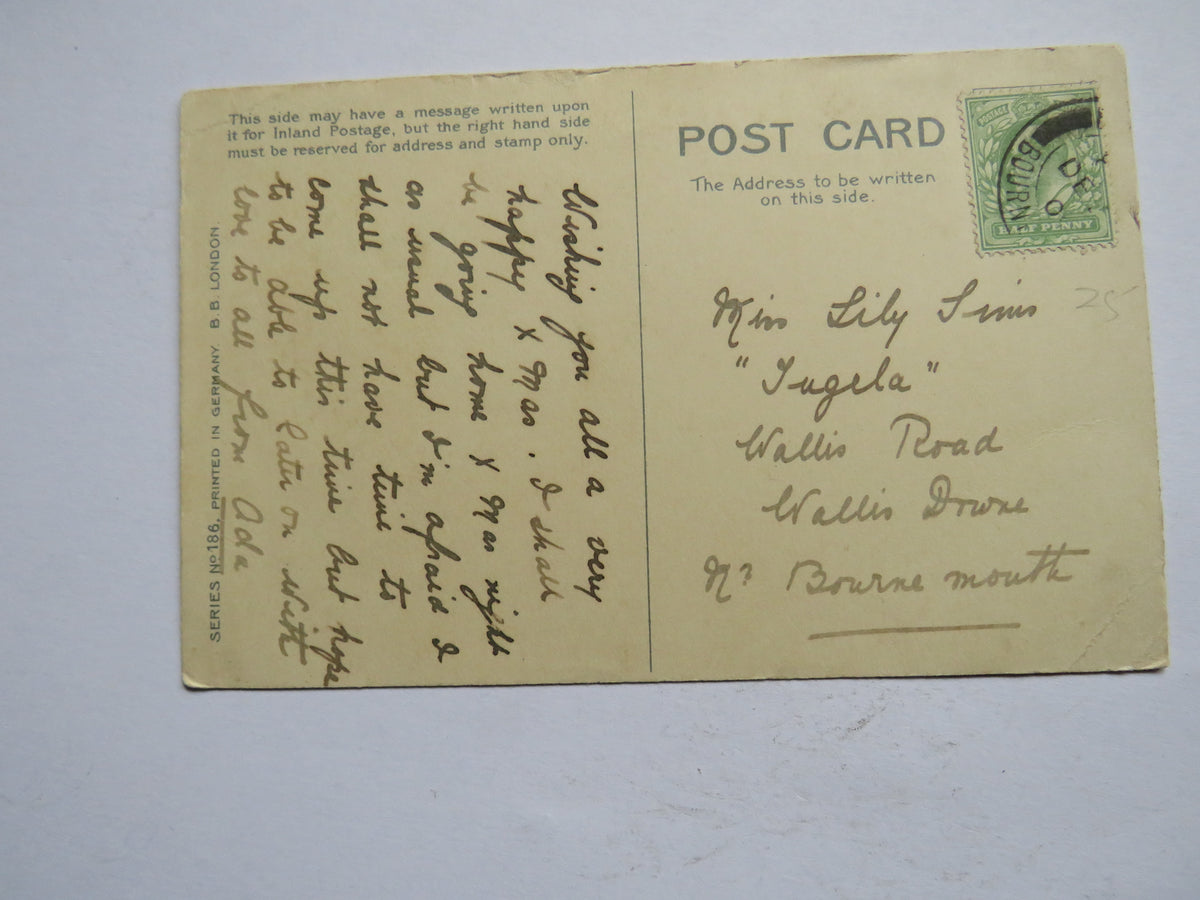 This side may have a message written upon
it for Inland Postage, but the right hand side
must be reserved for address and stamp only.
Wishing you all a very
happy X Mas. I shall
be going home X Mas night
as usual but I'm afraid I
shall not have time to
come up this time but hope
to be able to later on with
love to all from Ada
SERIES No 186. PRINTED IN GERMANY. B. B. LONDON.
POST CARD
The Address to be written
on this side.
POSTAGE
HALF PENNY
BOURN
DE
0
25
Miss Lily Sims
"Tugela"
Wallis Road
Wallis Downe
Nr Bournemouth